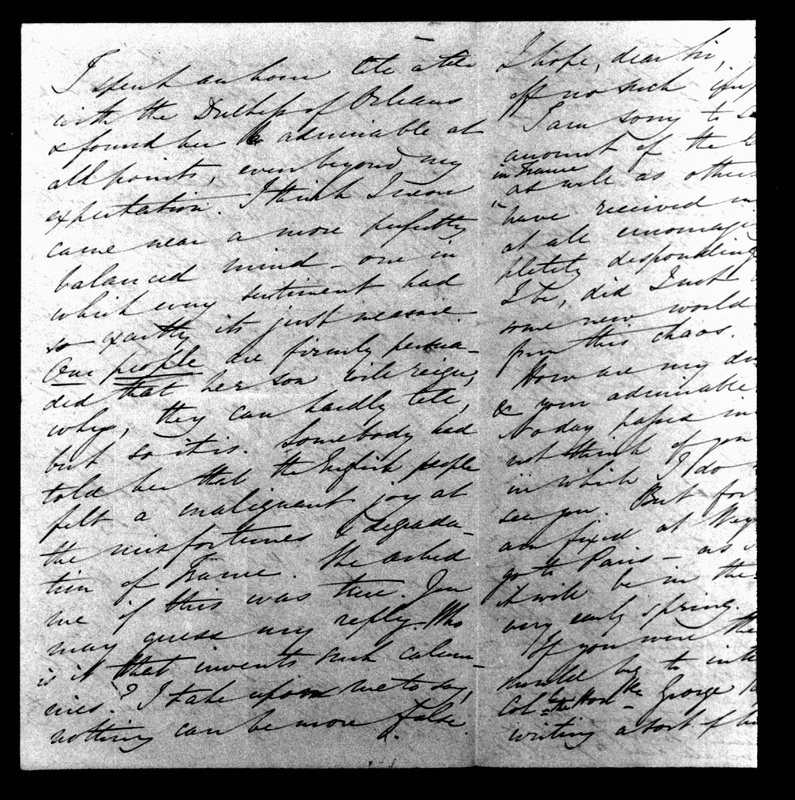 I spent an hour tête a tête
with the Duchess of Orleans
& found her admirable at
all points, even beyond my
expectation. I think I never
came near a more perfectly
balanced mind – one in
which every sentiment had
so exactly its just measure.
Our people are firmly persua-
ded that her son will reign;
why, they can hardly tell,
but so it is. Somebody had
told her that the English people
felt a malignant joy at
the misfortunes & degrada-
tion of France. She asked
me if this was true. You
may guess my reply. Who
is it that invents such calum-
nies? I take upon me to say,
nothing can be more false.
I hope, dear Sir,
of no such
I am sorry to
amount of the
in France
as well as others
have received
at all
pletely desponding
I to, did I not
some new world
from this chaos.
How are my
& your admirable
No day passes
not think of you
in which I do
see you. But for
am fixed at
go to Paris – as
it will be in the
very early spring.
If you were
should beg to
Col. the Honble George
writing a sort of